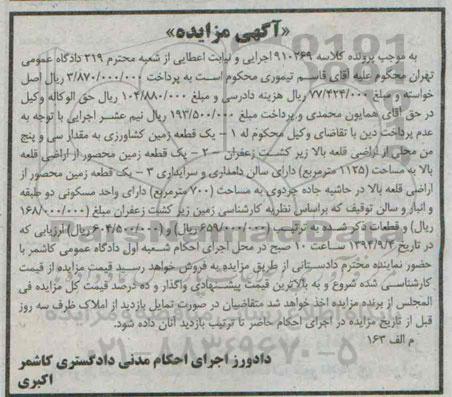 «آگهی مزایده»
به موجب پرونده کلاسه ۹۱۰۲۶۹ اجرایی و نیابت اعطایی از شعبه محترم ۲۱۹ دادگاه عمومی
تهران محکوم علیه آقای قاسم تیموری محکوم است به پرداخت ۳/۸۷۰/۰۰۰/۰۰۰ ریال اصل
خواسته و مبلغ ۷۷/۴۲۴/۰۰۰ ریال هزینه دادرسی و مبلغ ۱۰۴/۸۸۰/۰۰۰ ریال حق الوکاله وکیل
در حق آقای همایون محمدی و پرداخت مبلغ ۱۹۳/۵۰۰/۰۰۰ ریال نیم عشر اجرایی با توجه به
عدم پرداخت دین با تقاضای وکیل محکوم له ۱ - یک قطعه زمین کشاورزی به مقدار سی و پنج
من محلی از اراضی قلعه بالا زیر کشت زعفران - ۲ - یک قطعه زمین محصور از اراضی قلعه
بالا به مساحت (۱۱۲۵ مترمربع) دارای سالن دامداری و سرایداری ۳ - یک قطعه زمین محصور از
اراضی قلعه بالا در حاشیه جاده جردوی به مساحت (۷۰۰ مترمربع) دارای واحد مسکونی دو طبقه
و انبار و سالن توقیف که براساس نظریه کارشناسی زمین زیر کشت زعفران مبلغ (۱۶۸/۰۰۰/۰۰۰
ریال) و قطعات ذکر شده به ترتیب (۶۵۹/۰۰۰/۰۰۰ ریال) و (۶۰۴/۵۰۰/۰۰۰ ریال) ارزیابی که
در تاریخ ۱۳۹۴/۹/۴ ساعت ۱۰ صبح در محل اجرای احکام شعبه اول دادگاه عمومی کاشمر با
حضور نماینده محترم دادستانی از طریق مزایده به فروش خواهد رسید قیمت مزایده از قیمت
کارشناسی شده شروع و به بالاترین قیمت پیشنهادی واگذار و ده درصد قیمت کل مزایده فی
المجلس از برنده مزایده اخذ خواهد شد متقاضیان در صورت تمایل بازدید از املاک ظرف سه روز
قبل از تاریخ مزایده در اجرای احکام حاضر تا ترتیب بازدید آنان داده شود.
م الف ۱۶۳
دادورز اجرای احکام مدنی دادگستری کاشمر
اکبری
۰۲۱-۸۸۳۴۹۶۷۰-۵